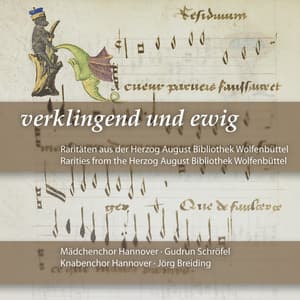 Residuum
cueur
verklingend und ewig
Raritäten aus der Herzog August Bibliothek Wolfenbüttel
Rarities from the Herzog August Bibliothek Wolfenbüttel
ger Que de
Mädchenchor Hannover · Gudrun Schröfel
Knabenchor Hannover · Jörg Breiding